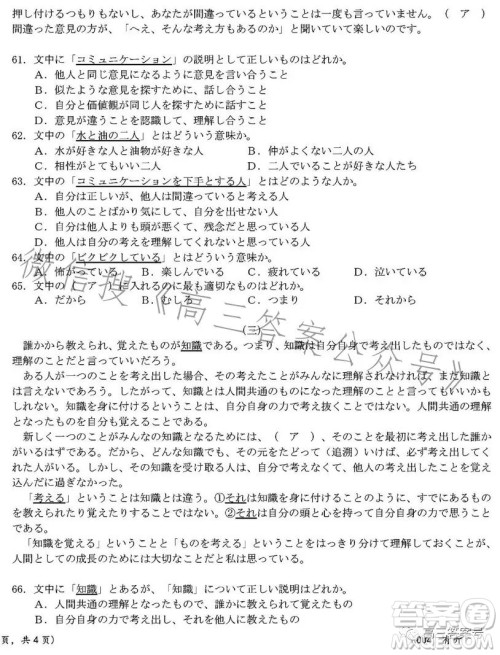 押し付けるつもりもないし、あなたが間違っているということは一度も言っていません。（　ア　）
間違った意見の方が、「へえ、そんな考え方もあるのか」と聞いていて楽しいのです。
61. 文中の「コミュニケーション」の説明として正しいものはどれか。
A. 他人と同じ意見になるように意見を言い合うこと
B. 似たような意見を探すために、話し合うこと
C. 自分と価値観が同じ人を探すために話すこと
D. 意見が違うことを認識して、理解し合うこと
62. 文中の「水と油の二人」とはどういう意味か。
A. 水が好きな人と油物が好きな人　B. 仲がよくない二人の人
C. 相性がとてもいい二人　D. 二人でいることが好きな人たち
63. 文中の「コミュニケーションを下手とする人」とはどのような人か。
A. 自分は正しいが、他人は間違っていると考える人
B. 他人のことばかり気にして、自分を出せない人
C. 他人よりも自分が頭が悪くて、残念だと思っている人
D. 他人が自分を理解してくれないと思っている人
64. 文中の「ビクビクしている」とはどういう意味か。
A. 怖がっている　B. 楽しんでいる　C. 疲れている　D. 泣いている
65. 文中の「　ア　」に入れるのに最もいいものはどれか。
A. だから　B. むしろ　C. つまり　D. それから
（三）
誰かから教えられ、覚えたものが知識である。つまり、知識は自分自身で考え出したものではなく、
理解のことだと言っていいだろう。
ある人が一つのことを考え出しても、他の人がそれを理解し、身に付けなければ、まだ知識と
は言えないであろう。したがって、知識とはみんなのものになった理解だと言ってもいいかもし
れない。それは自分自身の力で考え出すということとは、自分自身の力での理解が、人間共通の理解
となったものを自分のものとして覚えることである。
新しく一つのことがみんなの知識となるためには、（　ア　）、そのことを最初に考え出した誰か
がいるはずである。だから、知識の元をたどって（追溯）いけば、必ず考え出した
人がいる。しかし、その知識を受け取る人は、自分で考えてなくて、他人の考え出したことを覚え
込んだに過ぎなかった。
「考える」ということは知識とは違う。①それは知識を身に付けることのように、すでにあるもの
を教えられたり覚えたりするものではない。②それは自分の頭と心を持って、自分自身の力で考え
出すことである。
「知識を覚える」ということと「ものを考える」ということをはっきり分けて理解しておくことが、
人間としての成長のためには大切なことだと私は思っている。
66. 文中に「知識」とあるが、「知識」について正しい説明はどれか。
A. 人間共通の理解となったもので、他人から教えられ、覚えたものである。
B. 自分自身の力で考え出し、自分で理解したものである。
頁，共 4 页）
微信搜《高三答案公众号》
高三答案号